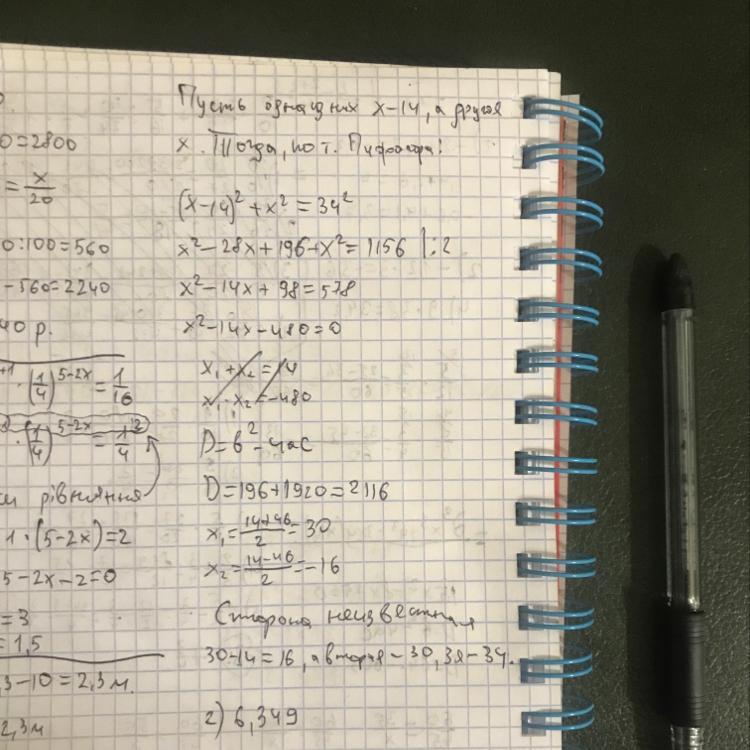 0=2800
= x/20
0:100=560
-560=2240
40 р.
+1 · (1/4)^5-2x = 1/16
· (1/4)^5-2x = 1/4^2
рівняння
1·(5-2x)=2
5-2x-2=0
=3
=1,5
,3-10=2,3м.
2,3м
Пусть одна из них x-14, а другая
x. Тогда, по т. Пифагора:
(x-14)²+x²=34²
x²-28x+196+x²=1156 |:2
x²-14x+98=578
x²-14x-480=0
x₁+x₂=14
x₁·x₂=-480
D=b²-4ac
D=196+1920=2116
x₁=14+46/2=30
x₂=14-46/2=-16
Сторона неизвестная
30-14=16, а вторая-30, 3я-34.
2) 6,349